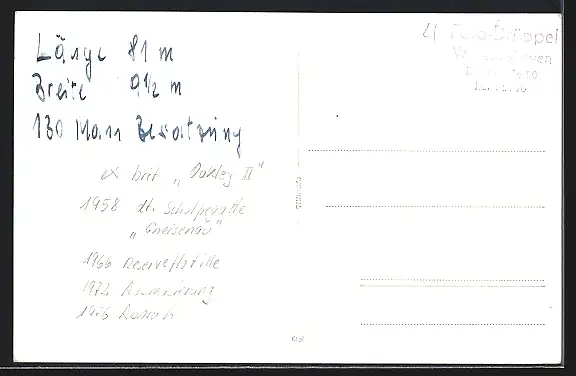 Länge 81 m
Breite 9 1/2 m
130 Mann Besatzung
ex brit „Oakley II"
1958 dt. Schulfregatte
„Gneisenau"
1966 Reserveflottille
1972 Ausmusterung
1976
4 Foto-Drüppel